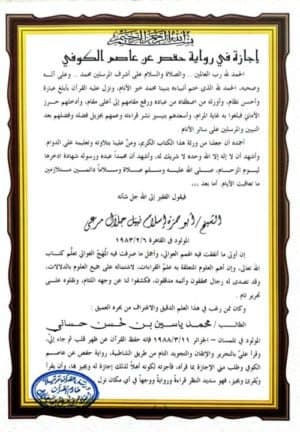 بسم الله الرحمن الرحيم
إجازة في رواية حفص عن عاصم الكوفي
الحمد لله رب العالمين .. والصلاة والسلام على أشرف المرسلين محمد .. وعلى آله
وصحبه، الحمد لله الذي ختم أنبياءه بنبينا محمد خير الأنام، ونزل عليه القرآن بأبلغ عبارة
وأحسن نظام، وأورثه من اصطفاه من عباده ورفع مقامهم إلى أعلى مقام، وأدخلهم حرز
الأماني فبلغوا به غاية المرام، وأسعدهم بتيسير نشر قراءته وعمهم بجزيل فضله وفضلهم بعد
النبيين والمرسلين على سائر الأنام
أحمده أن جعلنا من ورثة هذا الكتاب الكريم، ومن علينا بتلاوته وتعليمه على الدوام
وأشهد أن لا إله إلا الله وحده لا شريك له، وأشهد أن محمداً عبده ورسوله شهادة أدخرها
ليوم الزحام، صلى الله عليه وسلم صلاة وسلاماً دائمين متلازمين
ما تعاقبت الأيام. أما بعد ...
فيقول الفقير إلى الله جل شأنه
الشيخ/ أبو حمزة إسلام نبيل جلال مرعي
المولود في القاهرة ١٩٨٣/٢/٦
إن أولى ما تقف به الهمم العوالي، وأجمل ما صرفت فيه المهج الغوالي تعلم كتاب
الله تعالى، وإن أهم العلوم المتعلقة به علم القراءات، لاشتماله على جميع العلوم بالدلالات،
وقد تصدى له رجال محققون وأئمة مدققون، فكشفوا لنا عن وجهه اللثام، ونقلوه على
تحرير تام.
وكان ممن رغب في هذا العلم الدقيق والاغتراف من بحره العميق:
الطالب/ محمد ياسين بن لحسن حساني
المولود في تلمسان - الجزائر ١٩٨٨/٣/١١ فإنه حفظ القرآن عن ظهر قلب ثم جاء إلي،
وقرأ علي بالتحرير والإتقان والتجويد التام من طريق الشاطبية، رواية حفص عن عاصم
الكوفي وطلب مني الإجازة بما قرأه، فأجزته لكونه أهلاً لذلك إجازة له ويجيز بها، وأن يقرأ
ويُقرئ ويجيز، فهو سديد النظر قراءةً ورواية ووجهاً في أي مكان نزل